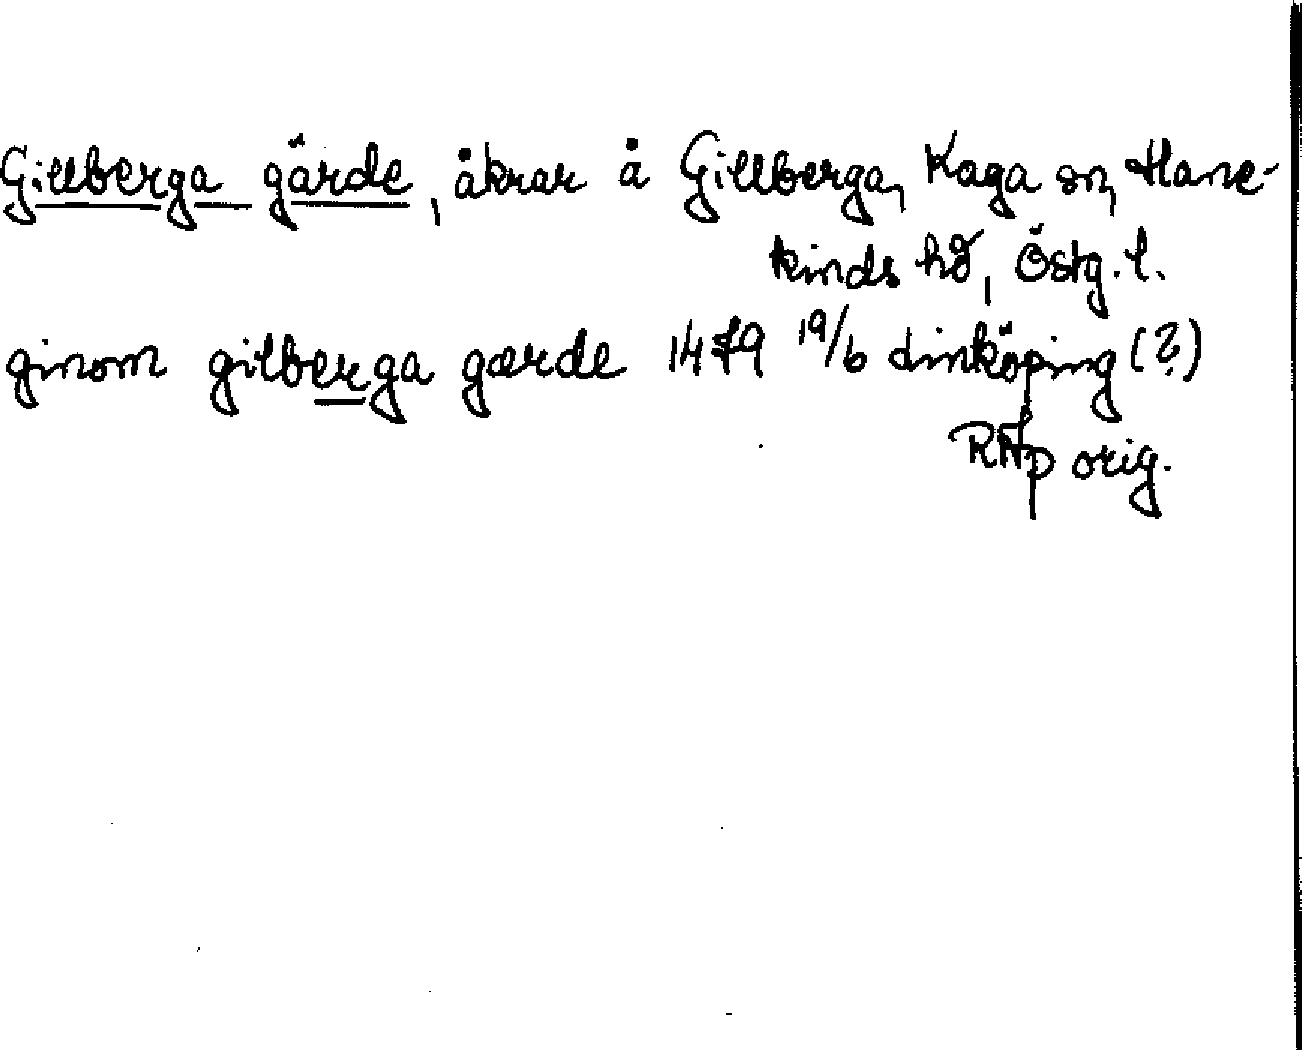 Gillberga gärde, åkrar å Gillberga, Kaga sn, Hane-
kinds hd, Östg. l.
ginom gilberga gærde 1479 19/6 Linköping (?)
RAp orig.